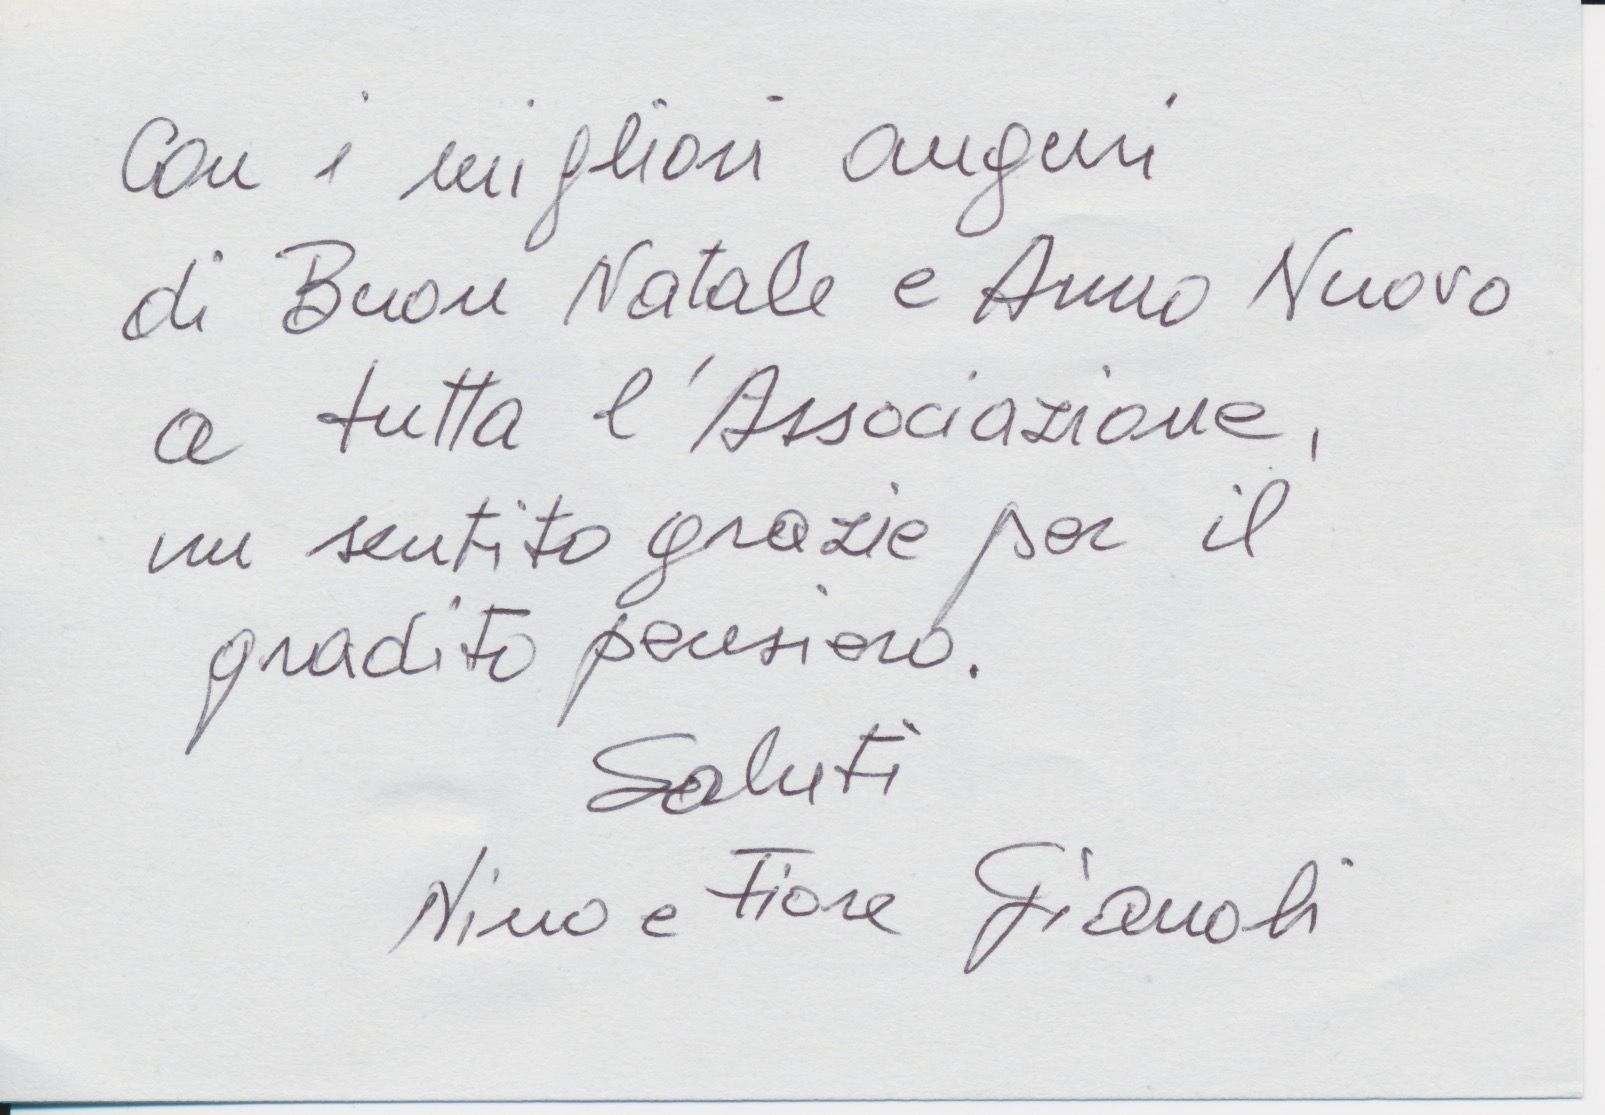 Con i migliori auguri
di Buon Natale e Anno Nuovo
a tutta l'Associazione,
un sentito grazie per il
gradito pensiero.
Saluti
Nino e Fiore Gianoli